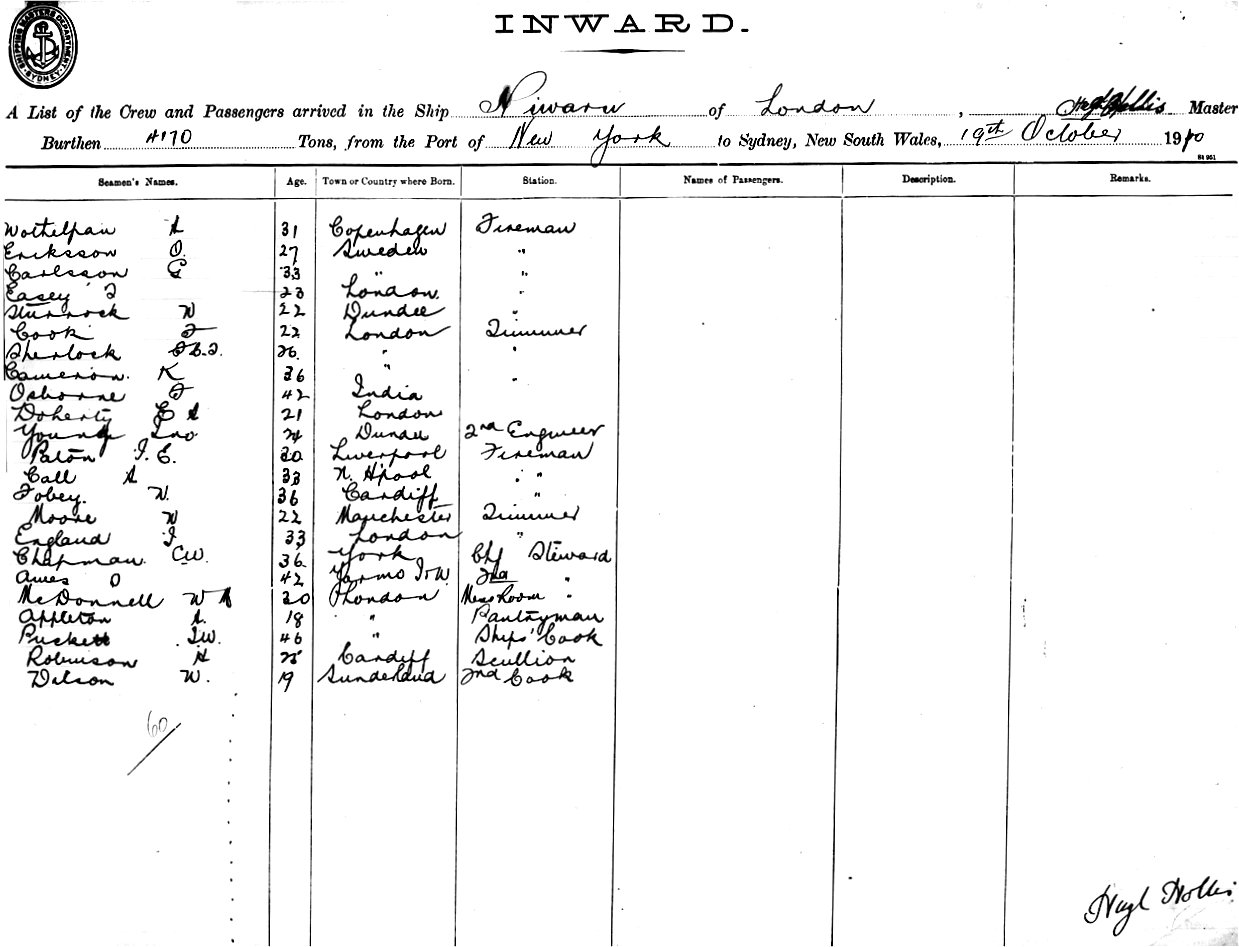 SHIPPING MASTERS DEPARTMENT SYDNEY
INWARD.
A List of the Crew and Passengers arrived in the Ship Niwaru of London, Hugh Hollis Master
Burthen 4170 Tons, from the Port of New York to Sydney, New South Wales, 19th October 1910
Seamen's Names. Age. Town or Country where Born. Station. Names of Passengers. Description. Remarks.
A 31 Copenhagen Fireman
Eriksson O. 27 Sweden "
Carlsson G 33 " "
Easey J 23 London. "
Sturrock W 22 Dundee "
Cook F 22 London Trimmer
Sherlock 26. " "
Cameron. K 36 " "
Osborne F 42 India
Doherty E A 21 London
Young Jno Dundee 2nd Engineer
Paton J. E. 30 Liverpool Fireman
Call A 33 N. H'pool "
Tobey. W. 36 Cardiff "
Moore W 22 Manchester Trimmer
England J 33 London "
Chapman. CW. 36 York Chf Steward
Ames O 42 2nd "
McDonnell W 20 London Mess Room "
Appleton A. 18 " Pantryman
Puckett J.W. 46 " Ships' Cook
Robinson H Cardiff Scullion
W. 19 Sunderland 2nd Cook
60
Hugh Hollis